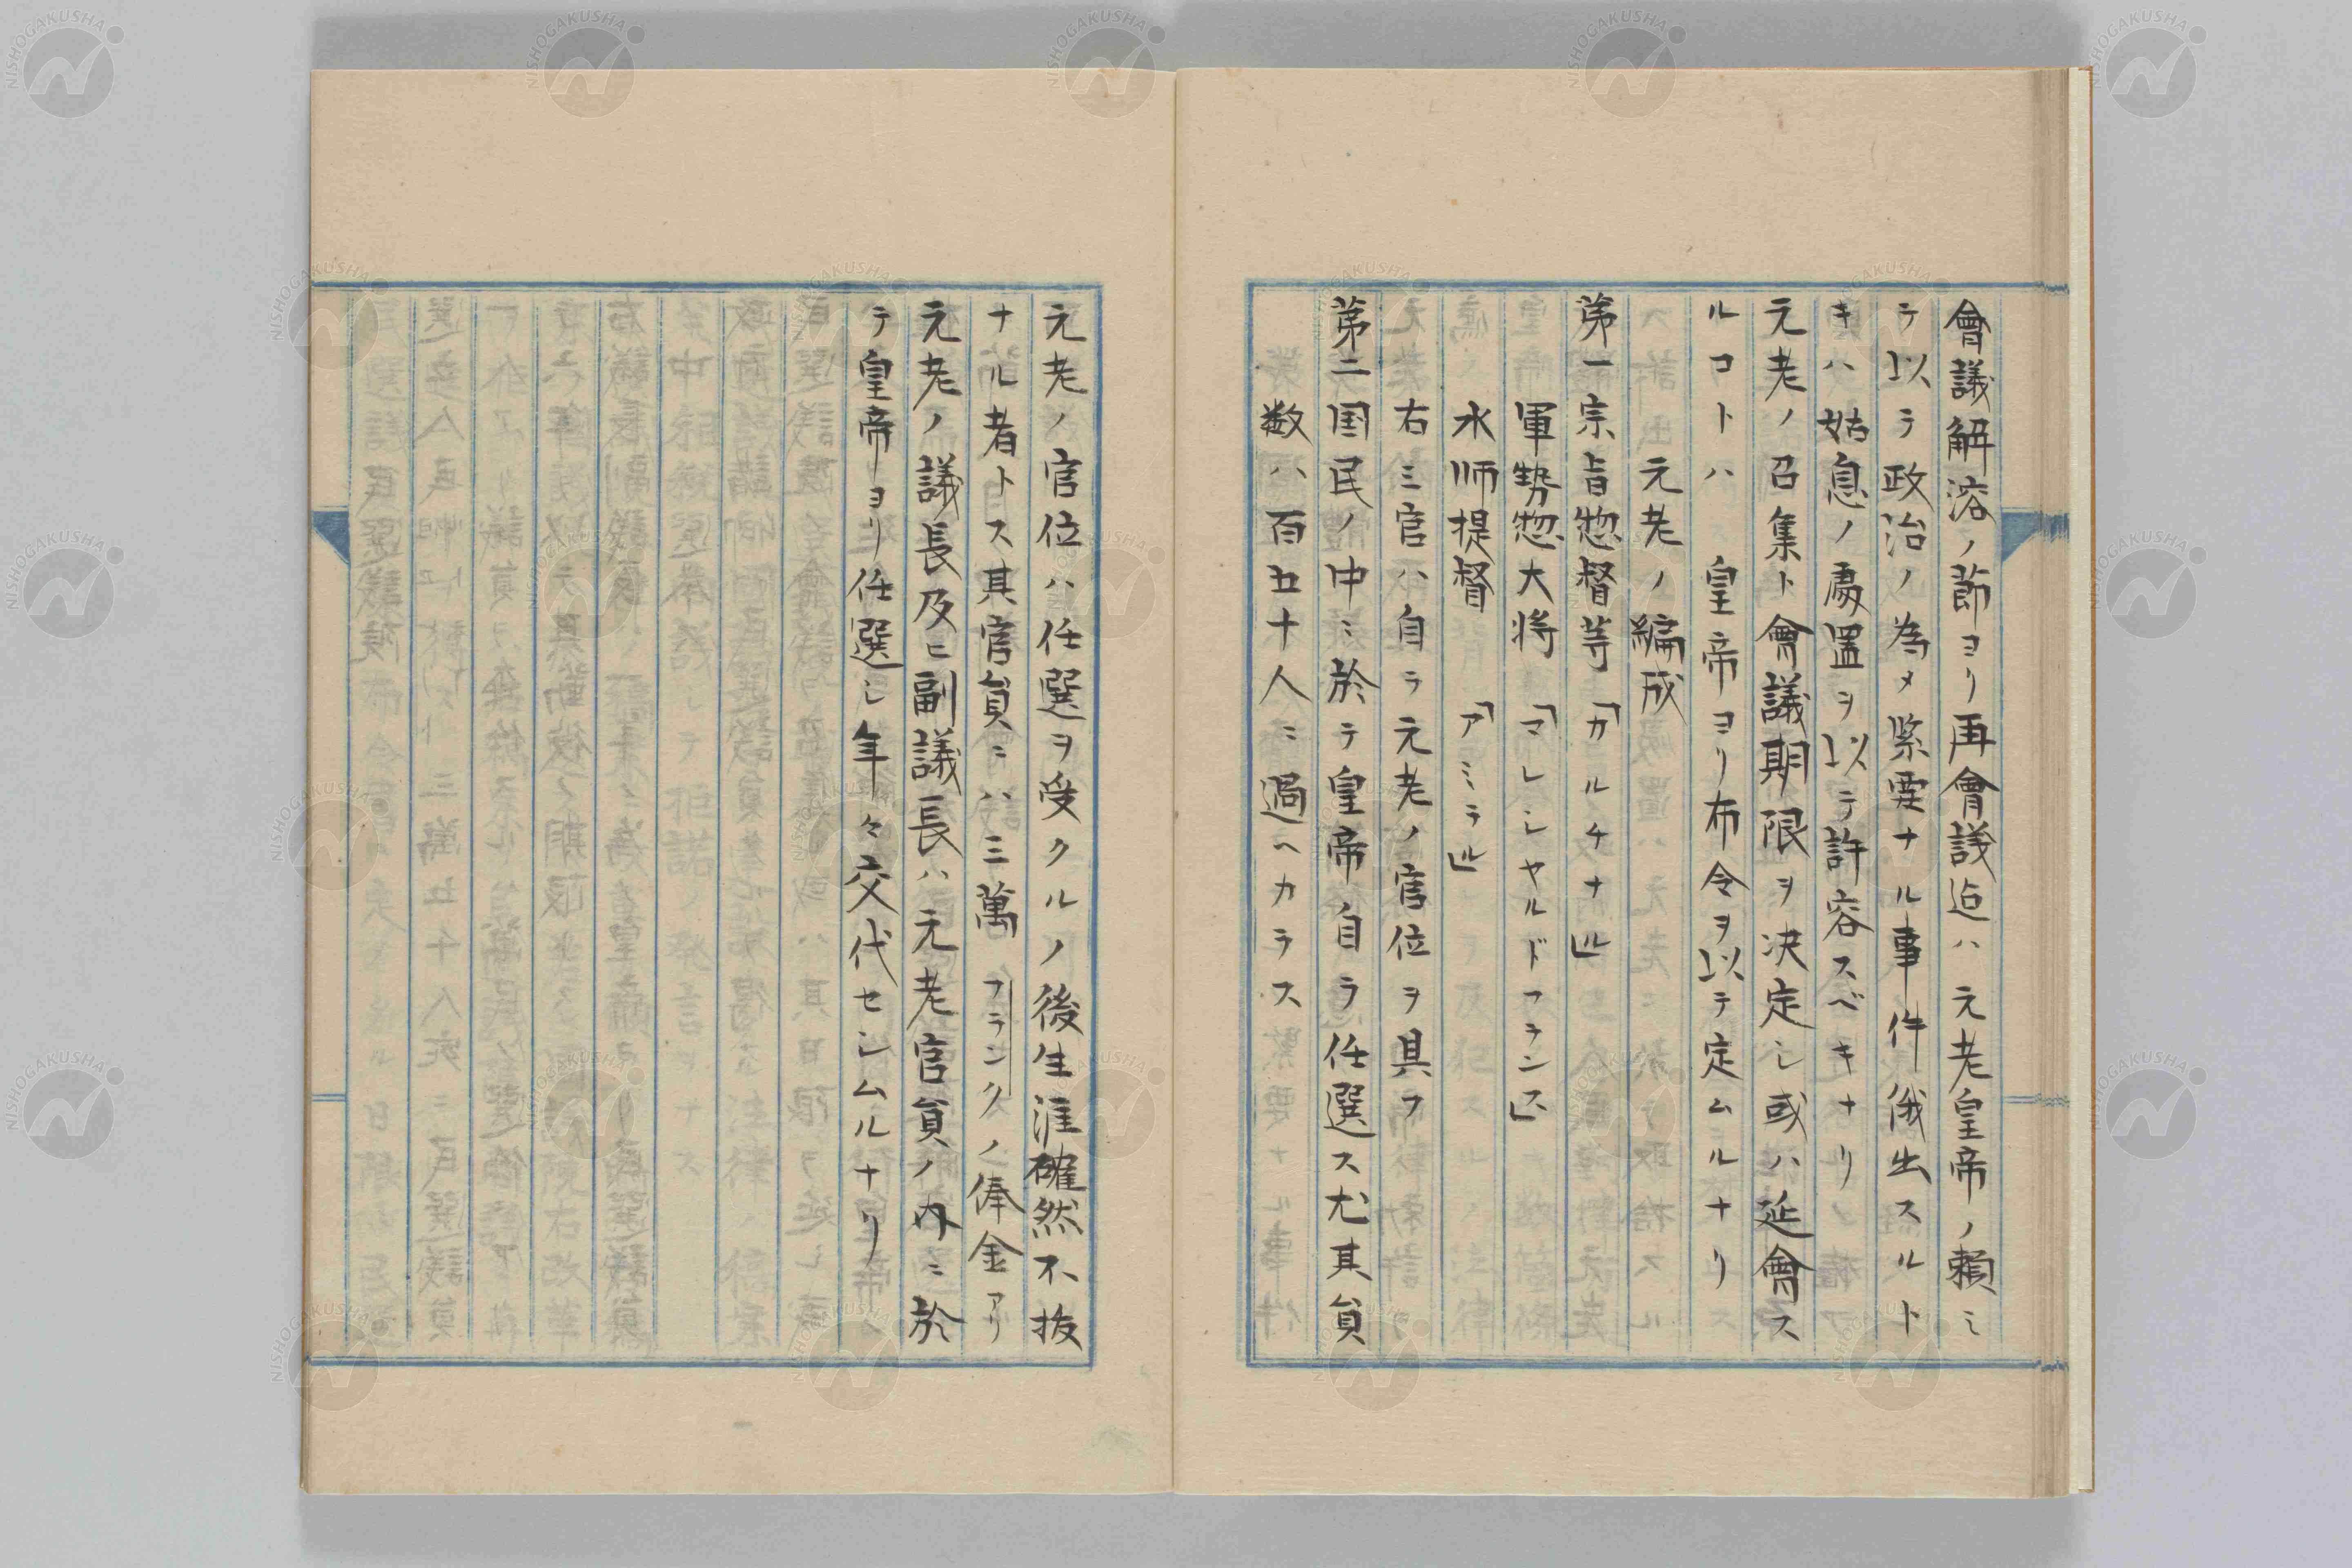 會議解溶ノ節ヨリ再會議迠ハ元老皇帝ノ賴ミ
テ以テ政治ノ為メ緊要ナル事件俄出スルト
キハ姑息ノ處置ヲ以テ許容スベキナリ
元老ノ召集ト會議期限ヲ决定シ或ハ延會ス
ルコトハ 皇帝ヨリ布令ヲ以テ定ムルナリ
元老ノ編成
第一宗旨惣督等「カルチナル」
軍勢惣大将「マレシヤルドフランス」
水師提督「アミラル」
右ミ官ハ自ラ元老ノ官位ヲ具フ
第二国民ノ中ニ於テ皇帝自ラ任選ス尤其貟
数ハ百五十人ニ過ヘカラス
元老ノ官位ハ任選ヲ受クルノ後生涯確然不抜
ナル者トス其官貟ニハ三萬フランクノ俸金アリ
元老ノ議長及ヒ副議長ハ元老官貟ノ内ニ於
テ皇帝ヨリ任選シ年々交代セシムルナリ
NISHOGAKUSHA